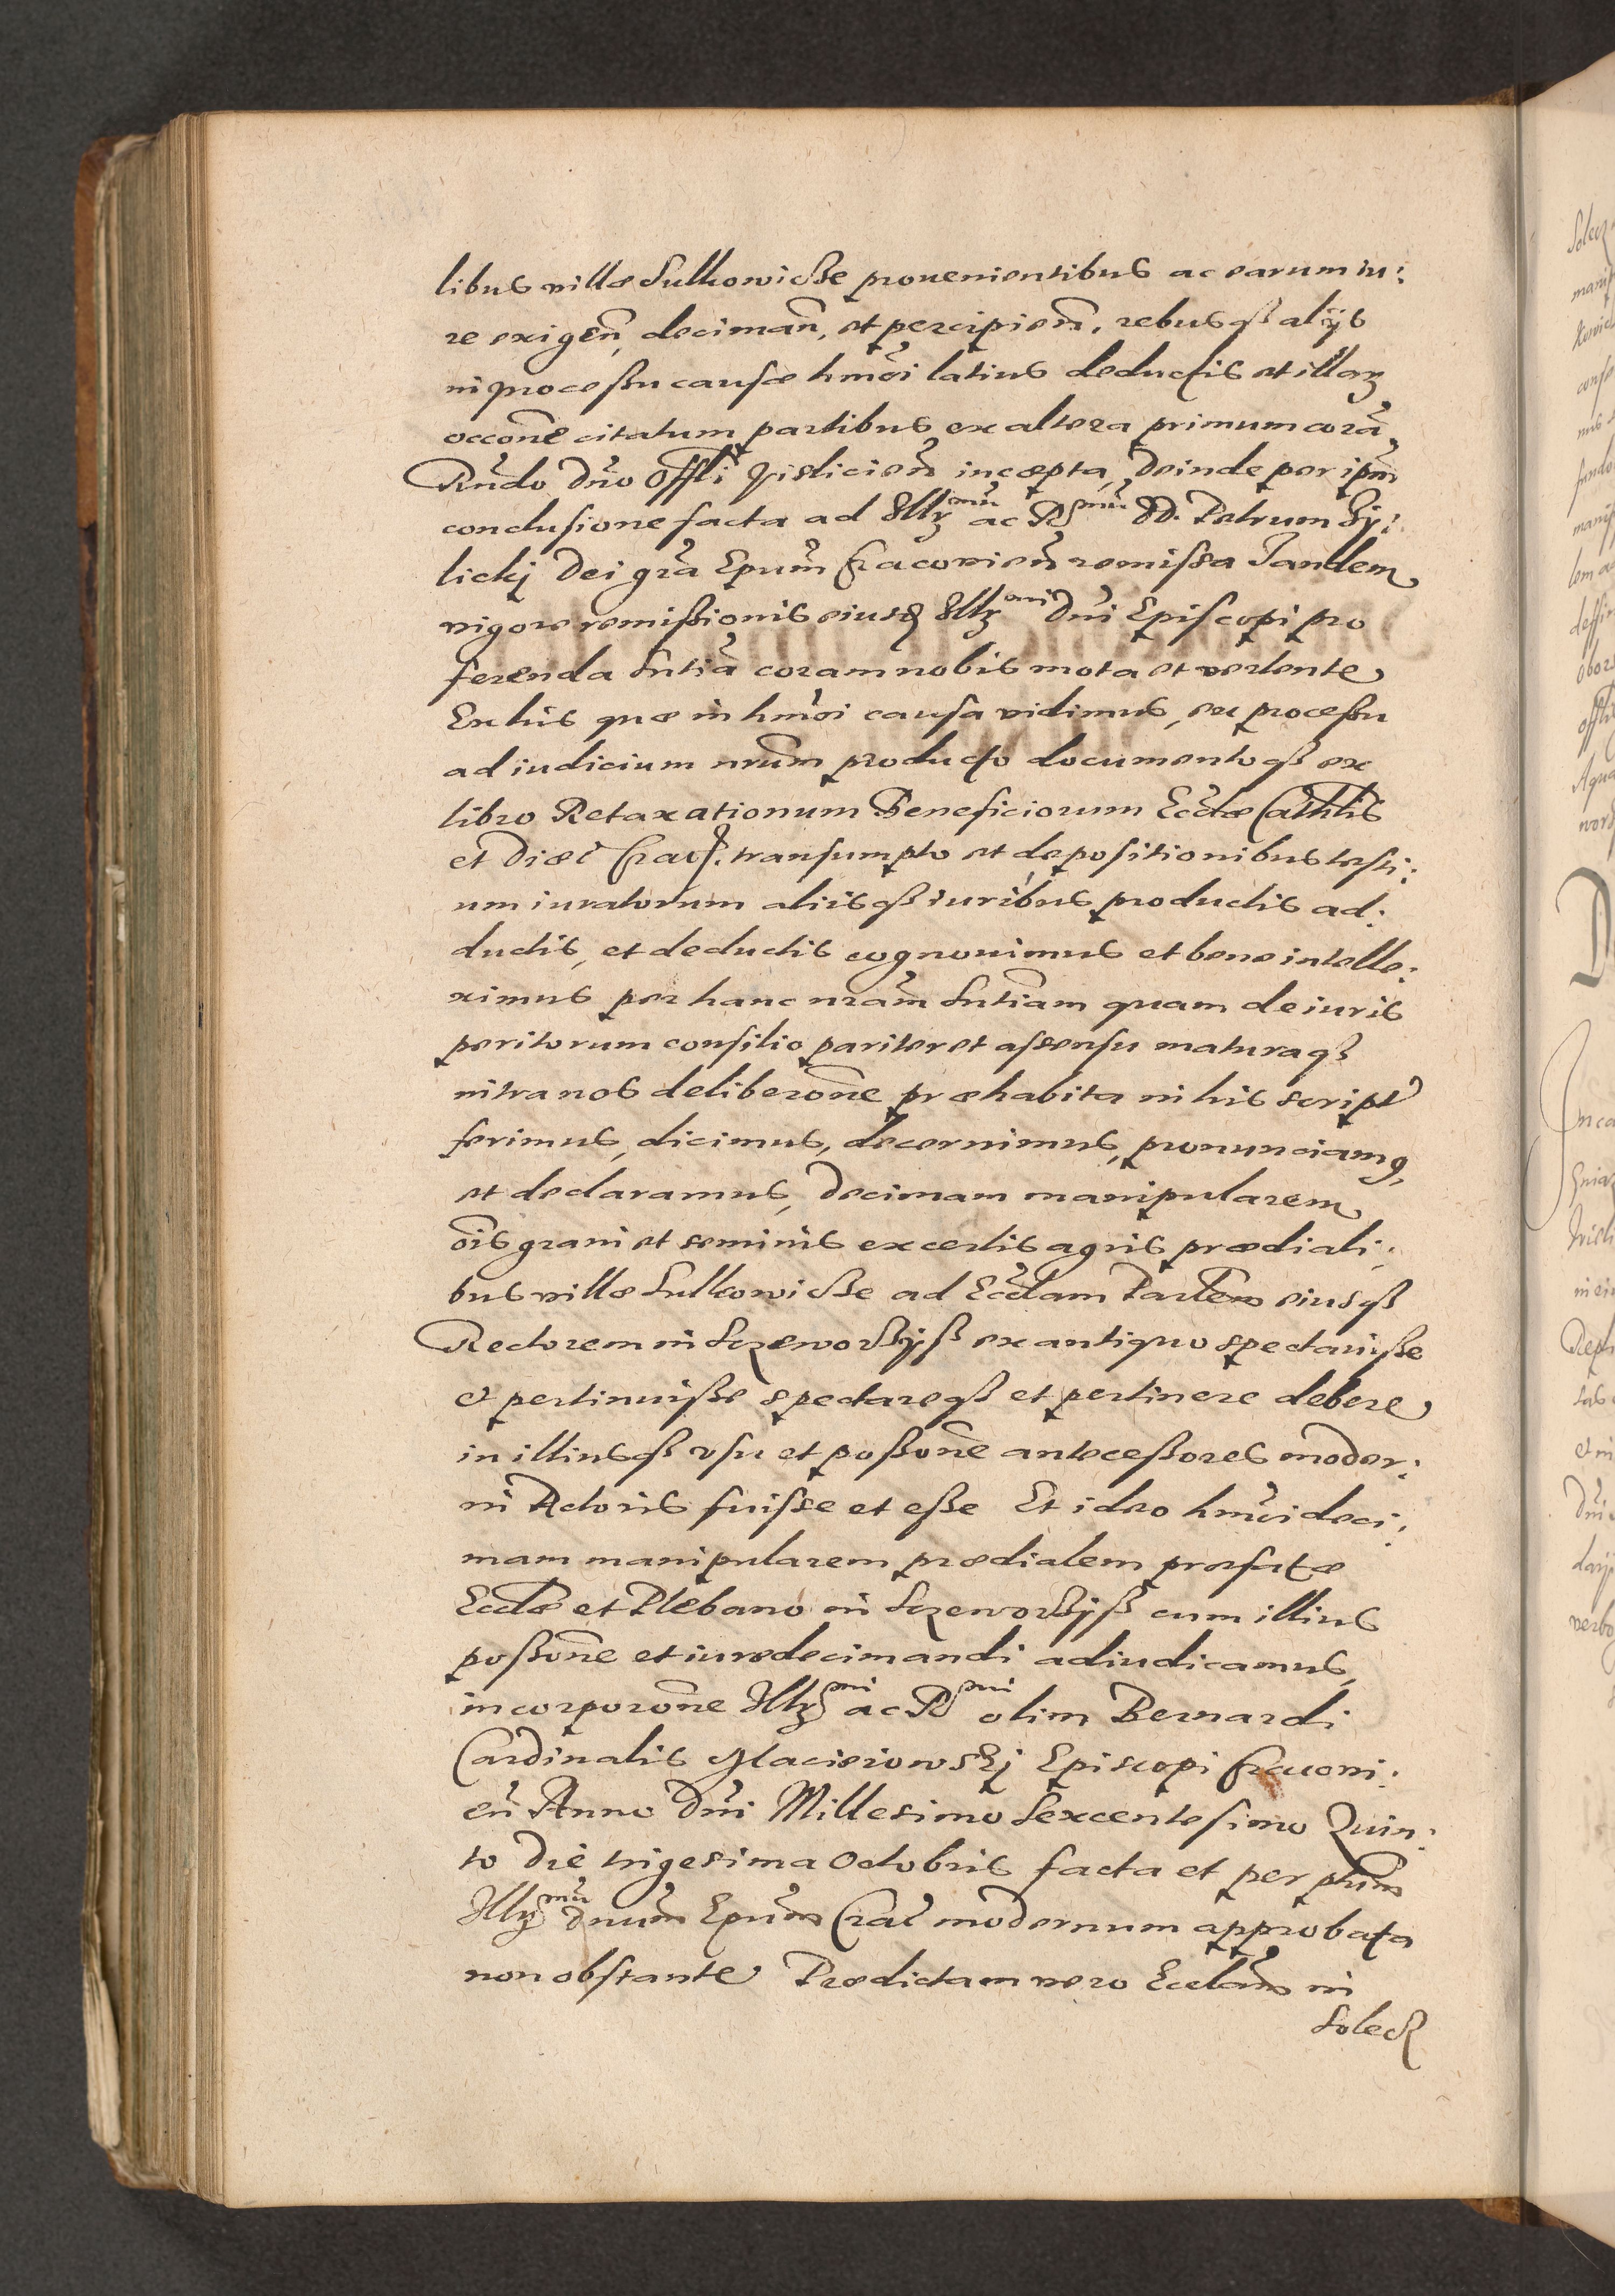 libus villæ Sulkowicße prouenientibus ac earum iu:
re exigen̄, deciman̄, et percipien̄. rebusqß alijs
in processu causæ hmōi latius deductis et illarz
occōne citatum partibus ex altera primum corā
Rn̄do Dn̄o Offli Vislicien̄ incæpta, Deinde per ipm̄
conclusione facta ad Illr̄mū ac Rmū DD. Petrum Gy:
licky Dei grā Epum̄ Cracovien̄ remissa Tandem
vigore remissionis eiusd Illmi Dn̄i Episcopi pro
ferenda sn̄tia coram nobis mota et vertente
Ex his quæ in hmōi causa vidimus, ex processu
ad iudicium nrum̄ producto documentoqß ex
libro Retaxationum Beneficiorum Eccłæ Cathlis
et Diæc̄ Crac. transumpto et depositionibus testi:
um iuratorum aliisqß iuribus productis ad:
ductis, et deductis cognouimus et bene intelle:
ximus per hanc nram̄ sn̄tiam quam de iuris
peritorum consilio pariter et assensu maturaqß
intra nos deliberōne præhabita in his script
ferimus, dicimus, decernimus, pronunciamꝯ,
et declaramus, Decimam manipularem
oīs grani et seminis ex certis agris prædiali:
bus villæ Sulkowicße ad Eccłam Parlem eiusqß
Rectorem in Skrzeworßyß ex antiquo spectauisse
et pertinuisse spectareqß et pertinere debere
in illiusqß vsu et possōne antecessores moder:
ni Actoris fuisse et esse Et ideo hmōi deci:
mam manipularem prædialem præfatæ
Eccłæ et Plebano in Skrzeworßyß cum illius
possōne et iure decimandi adiudicamus,
incorporōne Illmi ac Rmi olim Bernardi
Cardinalis Maciejowskj Episcopi Cracoui:
en̄ Anno Dn̄i Millesimo Sexcentesimo Quin:
to Die trigesima Octobris facta et per ptum̄
Illmū Dnum̄ Epum̄ Crac̄ modernum approbata
non obstante Prædictam vero Eccłam in
Soleck